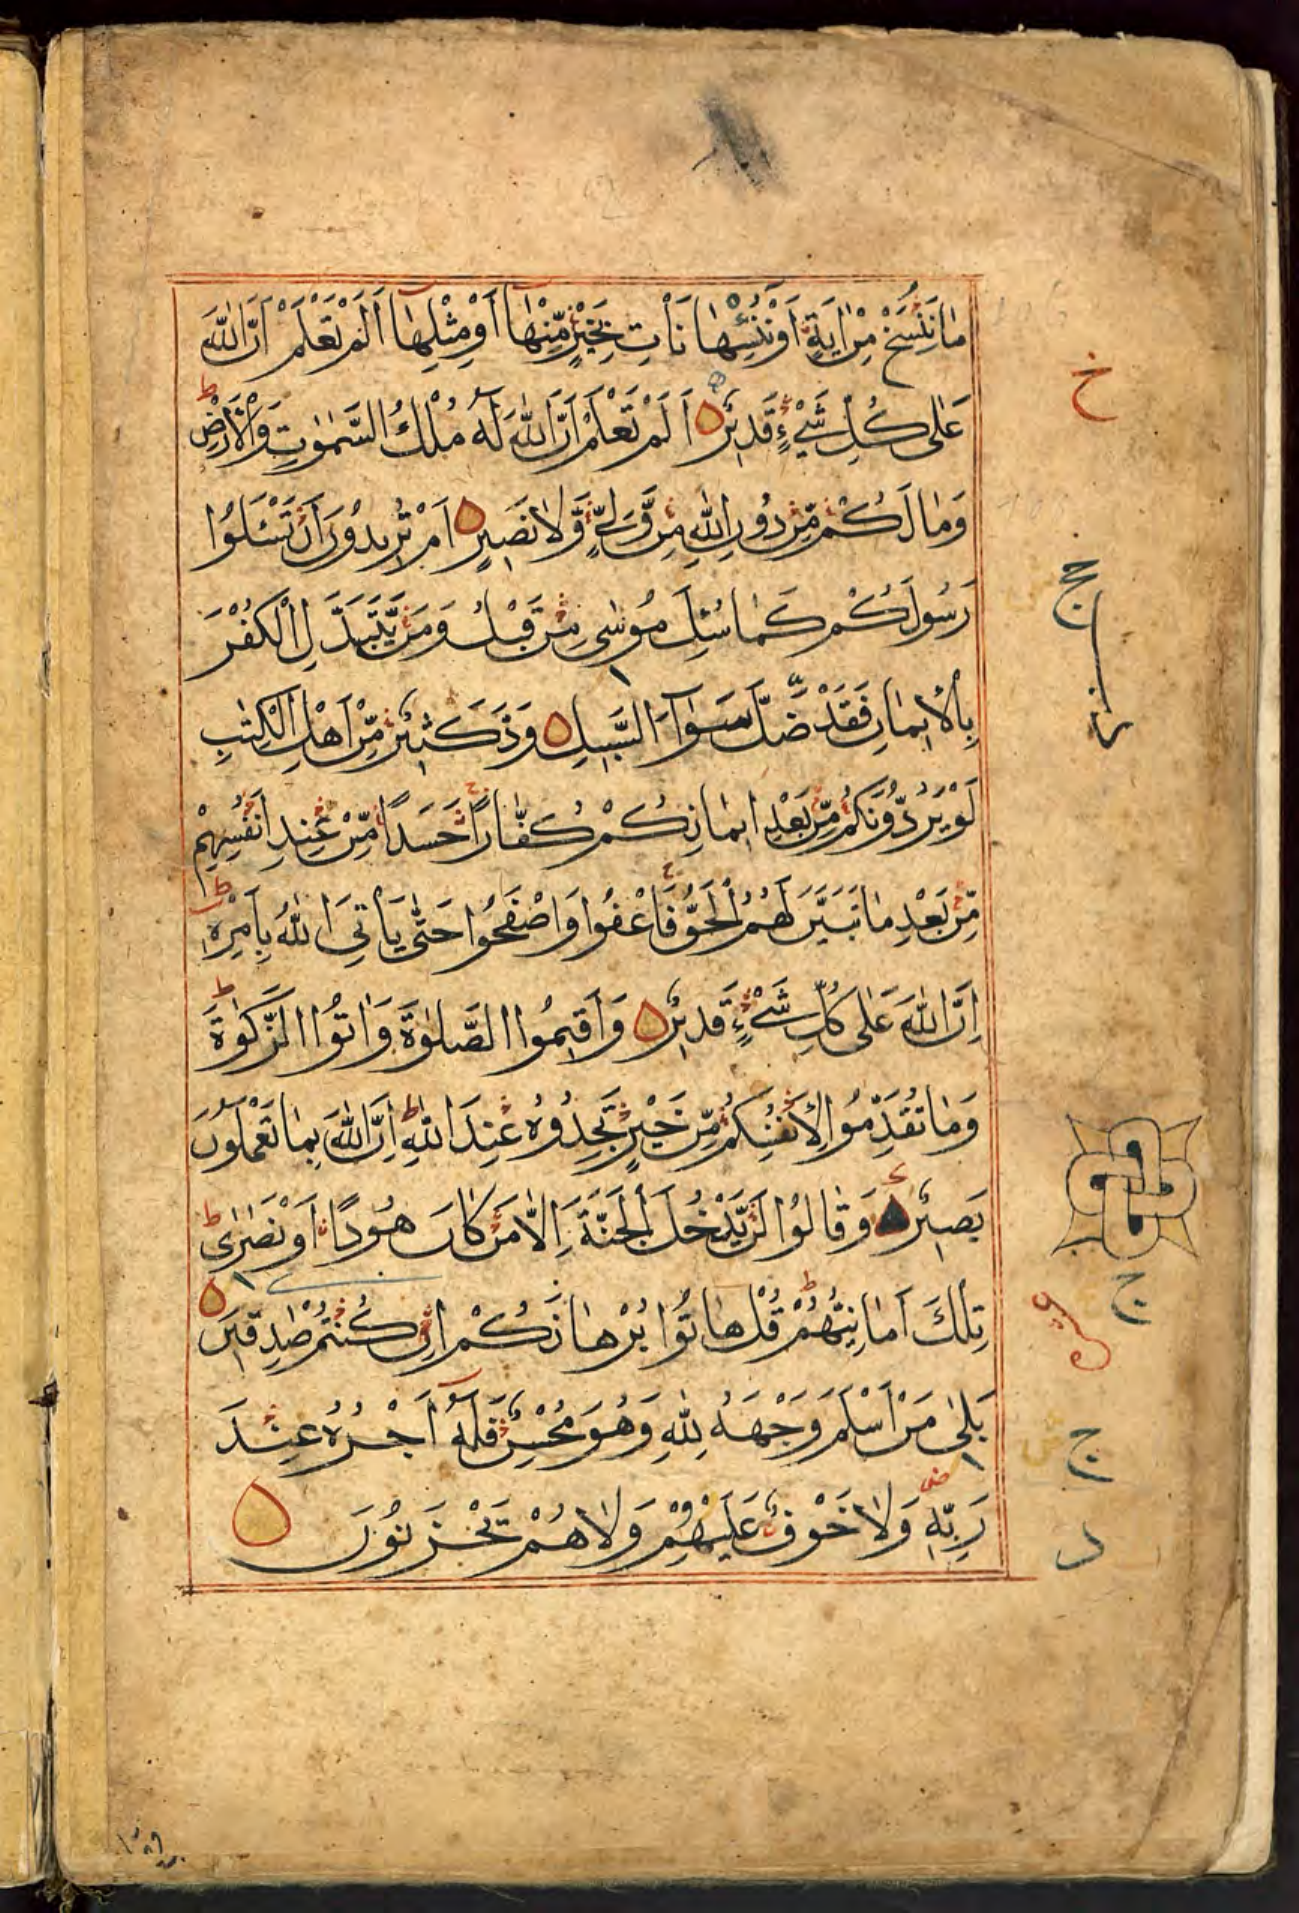 مَا نَنْسَخْ مِنْ اٰيَةٍ اَوْ نُنْسِهَا نَاْتِ بِخَيْرٍ مِّنْهَا اَوْ مِثْلِهَا اَلَمْ تَعْلَمْ اَنَّ اللّٰهَ
عَلٰى كُلِّ شَيْءٍ قَدِيْرٌ اَلَمْ تَعْلَمْ اَنَّ اللّٰهَ لَهٗ مُلْكُ السَّمٰوٰتِ وَالْاَرْضِ ط
وَمَا لَكُمْ مِّنْ دُوْنِ اللّٰهِ مِنْ وَّلِيٍّ وَّلَا نَصِيْرٍ اَمْ تُرِيْدُوْنَ اَنْ تَسْـَٔلُوْا
رَسُوْلَكُمْ كَمَا سُئِلَ مُوْسٰى مِنْ قَبْلُ وَمَنْ يَّتَبَدَّلِ الْكُفْرَ
بِالْاِيْمَانِ فَقَدْ ضَّلَّ سَوَآءَ السَّبِيْلِ وَدَّ كَثِيْرٌ مِّنْ اَهْلِ الْكِتٰبِ
لَوْ يَرُدُّوْنَكُمْ مِّنْ بَعْدِ اِيْمَانِكُمْ كُفَّارًا حَسَدًا مِّنْ عِنْدِ اَنْفُسِهِمْ
مِّنْ بَعْدِ مَا تَبَيَّنَ لَهُمُ الْحَقُّ فَاعْفُوْا وَاصْفَحُوْا حَتّٰى يَاْتِيَ اللّٰهُ بِاَمْرِهٖ ط
اِنَّ اللّٰهَ عَلٰى كُلِّ شَيْءٍ قَدِيْرٌ وَاَقِيْمُوا الصَّلٰوةَ وَاٰتُوا الزَّكٰوةَ ط
وَمَا تُقَدِّمُوْا لِاَنْفُسِكُمْ مِّنْ خَيْرٍ تَجِدُوْهُ عِنْدَ اللّٰهِ ط اِنَّ اللّٰهَ بِمَا تَعْمَلُوْنَ
بَصِيْرٌ وَقَالُوْا لَنْ يَّدْخُلَ الْجَنَّةَ اِلَّا مَنْ كَانَ هُوْدًا اَوْ نَصٰرٰى ط
تِلْكَ اَمَانِيُّهُمْ ط قُلْ هَاتُوْا بُرْهَانَكُمْ اِنْ كُنْتُمْ صٰدِقِيْنَ
بَلٰى مَنْ اَسْلَمَ وَجْهَهٗ لِلّٰهِ وَهُوَ مُحْسِنٌ فَلَهٗ اَجْرُهٗ عِنْدَ
رَبِّهٖ وَلَا خَوْفٌ عَلَيْهِمْ وَلَا هُمْ يَحْزَنُوْنَ